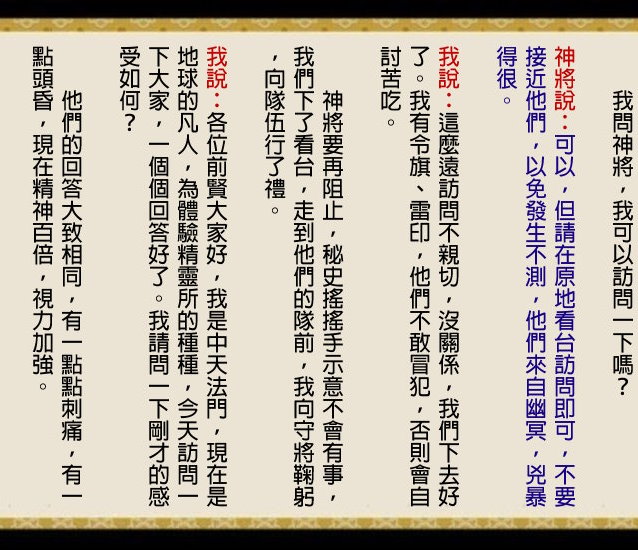 我問神將，我可以訪問一下嗎？
神將說：可以，但請在原地看台訪問即可，不要
接近他們，以免發生不測，他們來自幽冥，兇暴
得很。
我說：這麼遠訪問不親切，沒關係，我們下去好
了。我有令旗、雷印，他們不敢冒犯，否則會自
討苦吃。
神將要再阻止，秘史搖搖手示意不會有事，
我們下了看台，走到他們的隊前，我向守將鞠躬
，向隊伍行了禮。
我說：各位前賢大家好，我是中天法門，現在是
地球的凡人，為體驗精靈所的種種，今天訪問一
下大家，一個個回答好了。我請問一下剛才的感
受如何？
他們的回答大致相同，有一點點刺痛，有一
點頭昏，現在精神百倍，視力加強。